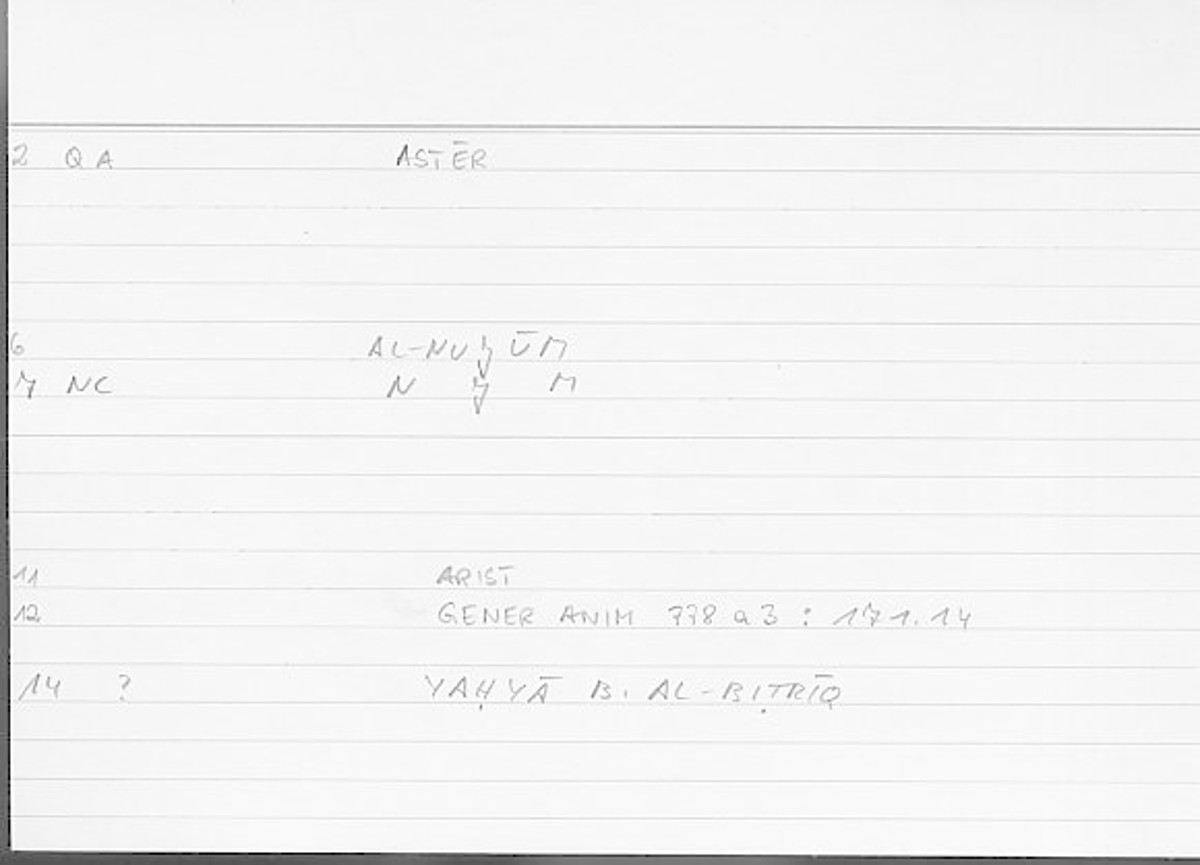 2 QA ASTĒR
6 AL-NUǦŪM
7 NC N Ǧ M
11 ARIST
12 GENER ANIM 778 a 3 : 171.14
14 ? YAḤYĀ B. AL-BIṬRĪQ